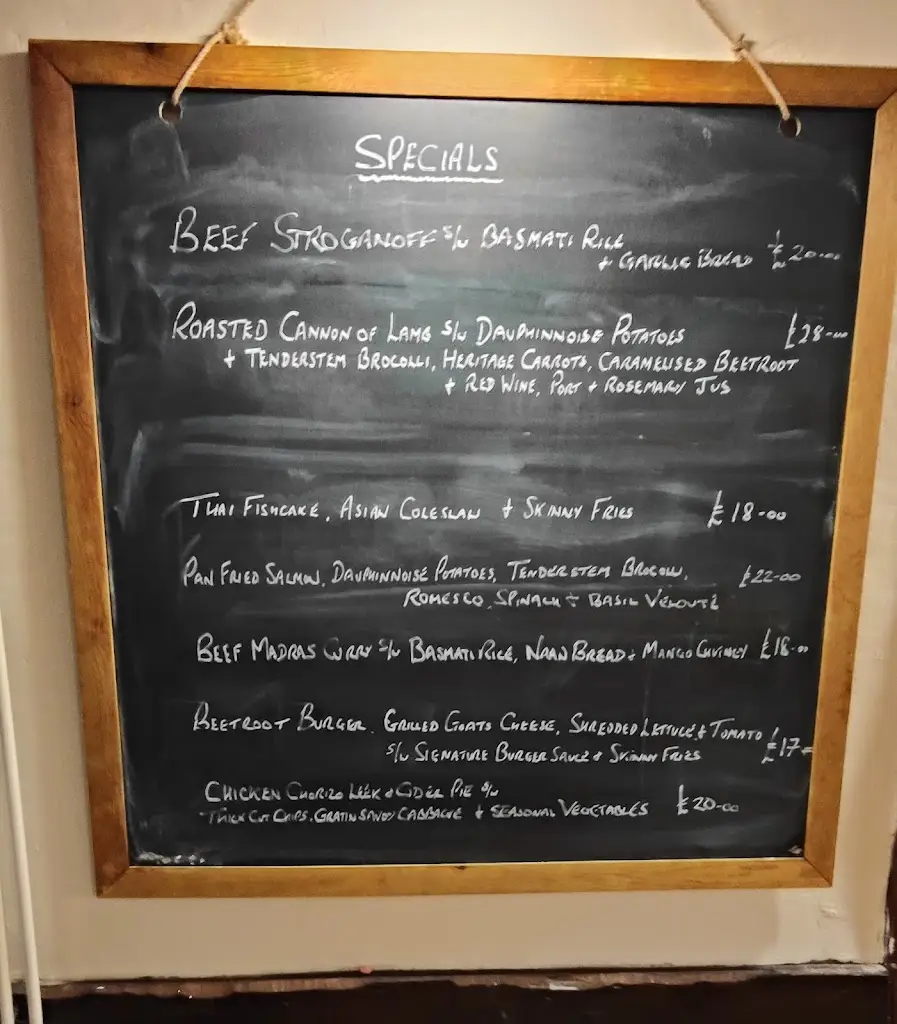 SPECIALS
BEEF STROGANOFF S/W BASMATI RICE
+ GARLIC BREAD £20-00
ROASTED CANNON OF LAMB S/W DAUPHINNOISE POTATOES £28-00
+ TENDERSTEM BROCOLLI, HERITAGE CARROTS, CARAMELISED BEETROOT
+ RED WINE, PORT + ROSEMARY JUS
THAI FISHCAKE, ASIAN COLESLAW + SKINNY FRIES £18-00
PAN FRIED SALMON, DAUPHINNOISE POTATOES, TENDERSTEM BROCOLLI, £22-00
ROMESCO, SPINACH + BASIL VELOUTÉ
BEEF MADRAS CURRY S/W BASMATI RICE, NAAN BREAD + MANGO CHUTNEY £18-00
BEETROOT BURGER, GRILLED GOATS CHEESE, SHREDDED LETTUCE + TOMATO £17-
S/W SIGNATURE BURGER SAUCE + SKINNY FRIES
CHICKEN CHORIZO LEEK + CIDER PIE S/W
THICK CUT CHIPS, GRATIN SAVOY CABBAGE + SEASONAL VEGETABLES £20-00